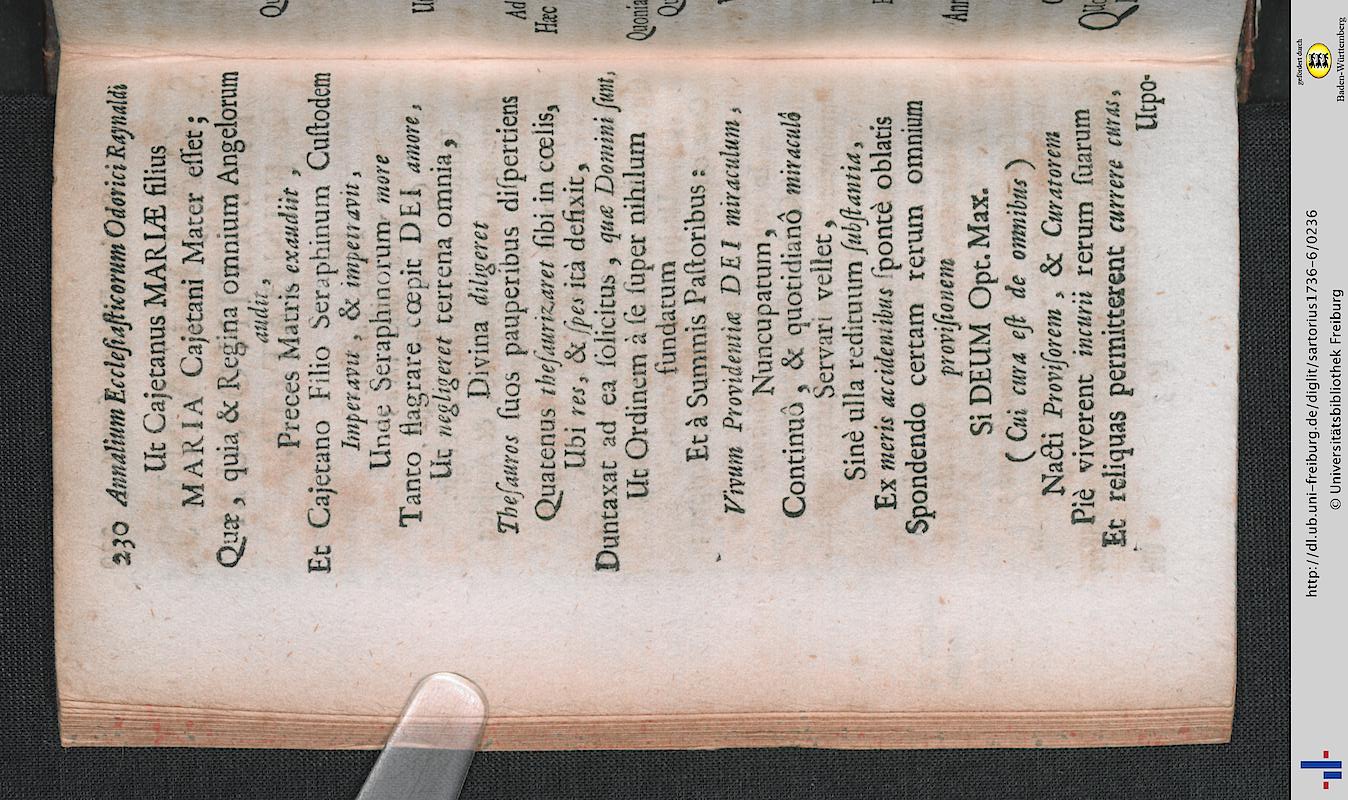 230 Annalium Eccleſiaſticorum Odorici Raynaldi
Ut Cajetanus MARIÆ filius
MARIA Cajetani Mater eſſet;
Quæ, quia & Regina omnium Angelorum
audit,
Preces Matris exaudiit,
Et Cajetano Filio Seraphinum Cuſtodem
Imperavit, & impetravit,
Unde Seraphinorum more
Tanto flagrare cœpit DEI amore,
Ut negligeret terrena omnia,
Divina diligeret
Theſauros ſuos pauperibus diſpertiens
Quatenus theſaurizaret ſibi in cœlis,
Ubi res, & ſpes ità defixit,
Duntaxat ad ea ſolicitus, quæ Domini ſunt,
Ut Ordinem à ſe ſuper nihilum
fundatum
Et à Summis Paſtoribus:
Vivum Providentiæ DEI miraculum,
Nuncupatum,
Continuô, & quotidianô miraculô
Servari vellet,
Sinè ulla redituum ſubſtantia,
Ex meris accidentibus ſpontè oblatis
Spondendo certam rerum omnium
proviſionem
Si DEUM Opt. Max.
(Cui cura eſt de omnibus)
Nacti Proviſorem, & Curatorem
Piè viverent incurii rerum ſuarum
Et reliquas permitterent currere curas,
Utpo-
Qu
Ad
Hæc
Quonia
Qu
Ann
http://dl.ub.uni-freiburg.de/diglit/sartorius1736-6/0236
© Universitätsbibliothek Freiburg
gefördert durch
Baden-Württemberg